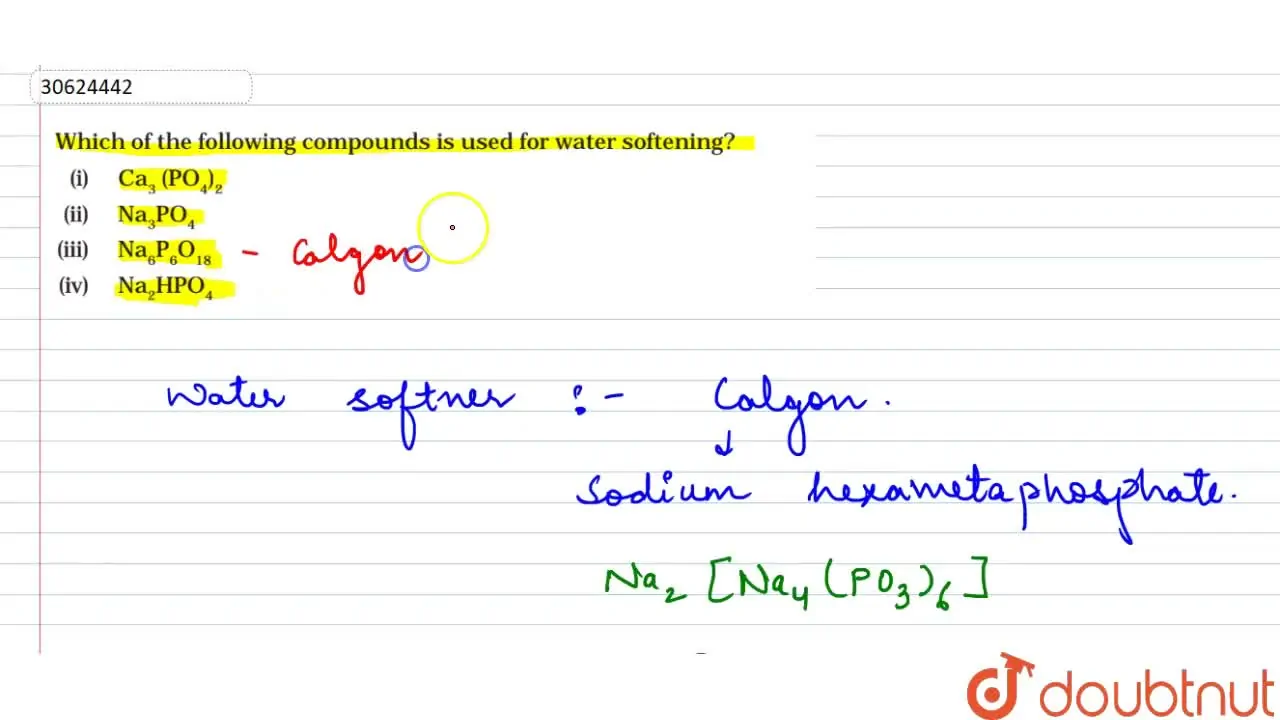 30624442
Which of the following compounds is used for water softening?
(i) Ca₃ (PO₄)₂
(ii) Na₃PO₄
(iii) Na₆P₆O₁₈ - Calgon
(iv) Na₂HPO₄
Water softner :- Calgon.
↓
Sodium hexametaphosphate.
Na₂ [Na₄ (PO₃)₆]
doubtnut